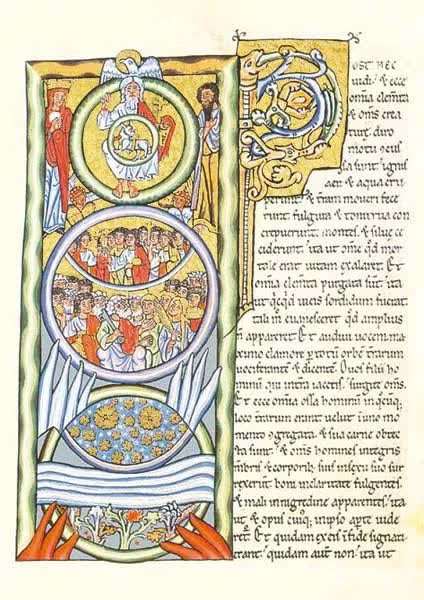 Post hec
uidi & ecce
om̄ia elem̄ta
& om̄s crea
ture diro
motu cōcus
sa sunt. ignis
aer & aqua eru
perunt & t̄ram moueri fece
runt. fulgura & tonitrua con
crepuerunt. montes & silue ce
ciderunt. ita ut om̄e qd̄ mor
tale erat uitam exalaret. Et
om̄ia elem̄ta purgata sunt ita
ut qͥcqͥd in eis sordidum fuerat.
tali m̄ euanesceret qd̄ amplius
n̄ appareret. Et audiui uocem
maximo clamore ꝑ totū orbē t̄rarum
uociferantē & dicentē. O uos filii ho
minū qui in terra iacetis. surgite om̄s.
Et ecce om̄ia ossa hominū in qͦcūq;
loco t̄rarum erant uelut ī uno mo
mento ↄgregata. & sua carne obtec
ta sunt. & om̄s homines integris
mb̄ris & corporib; suis in sexu suo sur
rexerunt. boni in claritate fulgentes.
& mali in nigredine apparentes. ita
ut & opus cuiq; in ipso apte uide
ret̄. Et quidam ex eis ī fide signati
erant. quidam aut̄ non. ita ut